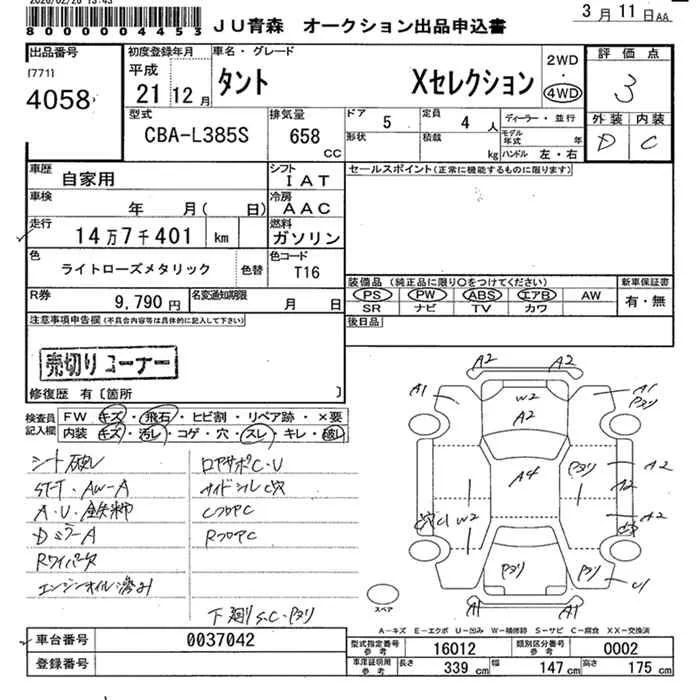 2026/02/26 13:43
800000004453
JU青森 オークション出品申込書
3月11日AA
出品番号
[771]
4058
初度登録年月
平成
21 12月
車名・グレード
タント Xセレクション
2WD
・
4WD
評価点
3
外装 内装
D C
型式
CBA-L385S
排気量
658
CC
ドア
5
定員
4 人
形状
積載
kg
ディーラー・並行
モデル年式 年
ハンドル 左・右
車歴
自家用
シフト
IAT
セールスポイント(正常に機能するものに限ります)
車検
年 月( 日)
冷房
AAC
走行
14万7千401 km
燃料
ガソリン
色
ライトローズメタリック
色替
色コード
T16
装備品(純正品に限り○をつけてください)
PS PW ABS エアB AW
SR ナビ TV カワ
新車保証書
有・無
R券
9,790円
名変通知期限
月 日
後日品
注意事項申告欄(不具合内容等は具体的に記入して下さい)
売切りコーナー
修復歴 有〔箇所 〕
検査員
記入欄
FW キズ・飛石・ヒビ割・リペア跡・×要
内装 キズ・汚レ・コゲ・穴・スレ・キレ・破レ
シート破レ
ST-T・AW-A
DミラーA
Rワイパー
エンジンオイル
ロアサポC・U
サイドシルC穴
CフロアC
RフロアC
下廻りS.C・アタリ
A2 A2
A1 W2 A1
A2
A4
A2
A2
W2 A2
A1 A1
スペア
A－キズ E－エクボ U－凹み W－補修跡 S－サビ C－腐食 XX－交換済
車台番号
0037042
登録番号
型式指定番号
参考
16012
類別区分番号
参考
0002
車庫証明用
参考
長さ 339cm 幅 147cm 高さ 175cm